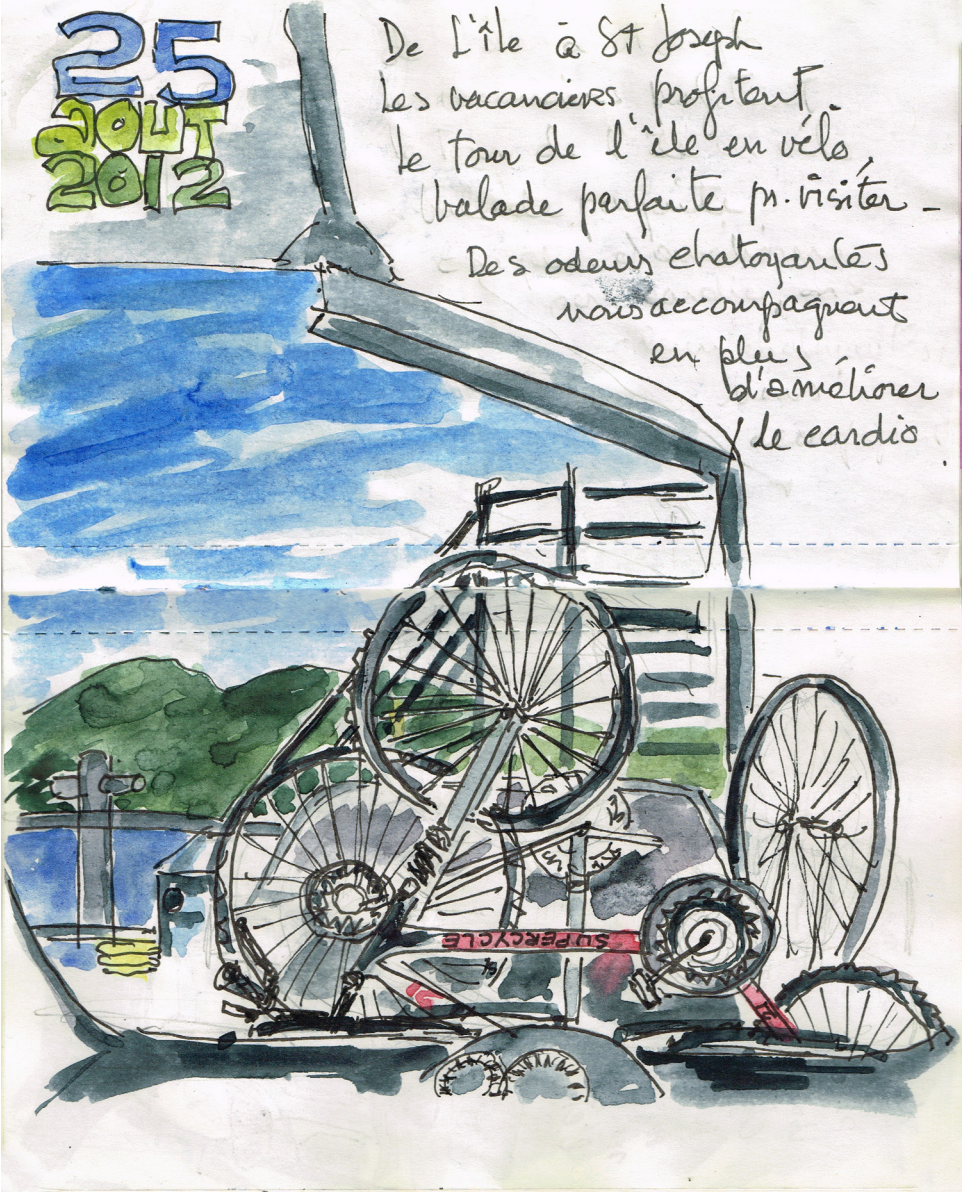 25
AOUT
2012
De L'île à St Joseph
Les vacanciers profitent
Le tour de l'île en vélo,
balade parfaite pr. visiter -
Des odeurs chatoyantes
nous accompagnent
en plus
d'améliorer
le cardio
SUPERCYCLE